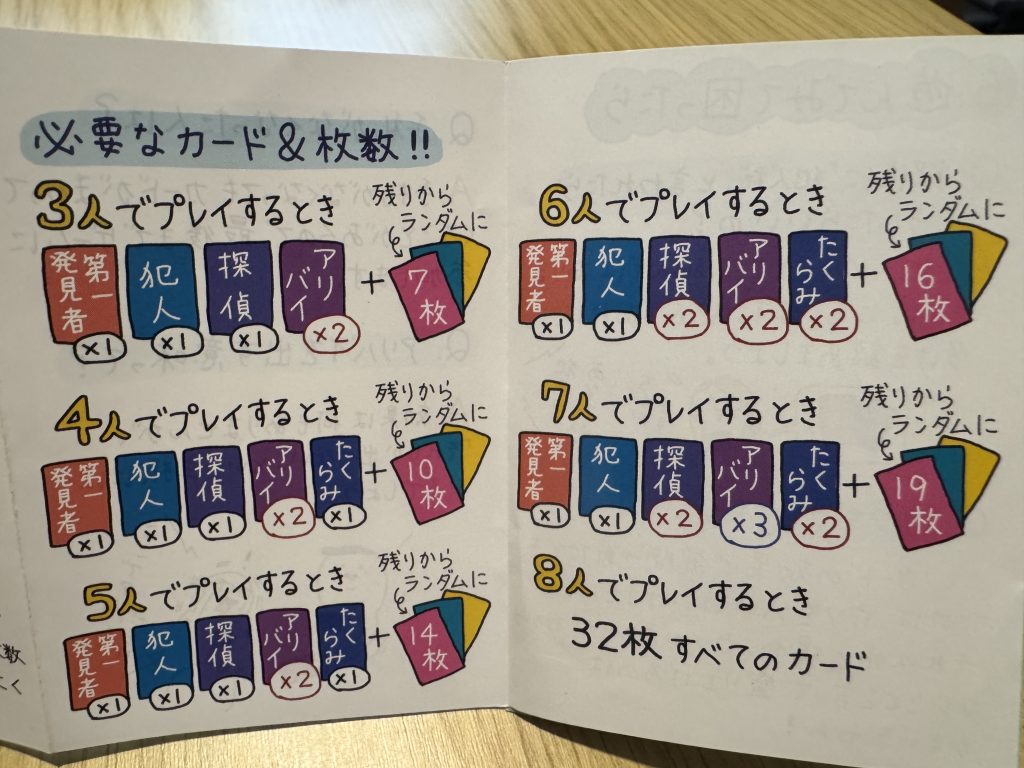 必要なカード&枚数!!
3人でプレイするとき
残りから
ランダムに
第一
発見者
×1
犯人
×1
探偵
×1
アリバイ
×2
+
7枚
4人でプレイするとき
残りから
ランダムに
第一
発見者
×1
犯人
×1
探偵
×1
アリバイ
×2
たくらみ
×1
+
10枚
5人でプレイするとき
残りから
ランダムに
第一
発見者
×1
犯人
×1
探偵
×1
アリバイ
×2
たくらみ
×1
+
14枚
6人でプレイするとき
残りから
ランダムに
第一
発見者
×1
犯人
×1
探偵
×2
アリバイ
×2
たくらみ
×2
+
16枚
7人でプレイするとき
残りから
ランダムに
第一
発見者
×1
犯人
×1
探偵
×2
アリバイ
×3
たくらみ
×2
+
19枚
8人でプレイするとき
32枚 すべてのカード